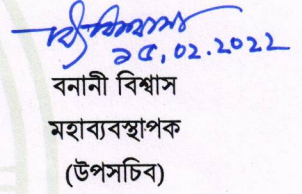 ১৫.০২.২০২২
বনানী বিশ্বাস
মহাব্যবস্থাপক
(উপসচিব)